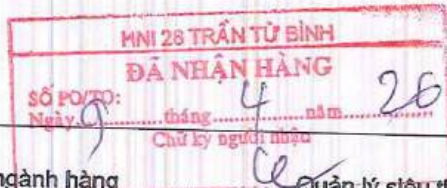 HNI 28 TRẦN TỬ BÌNH
ĐÃ NHẬN HÀNG
SỐ PO/TO:
Ngày 9 tháng 4 năm 26
Chữ ký người nhận
ngành hàng
Quản lý siêu